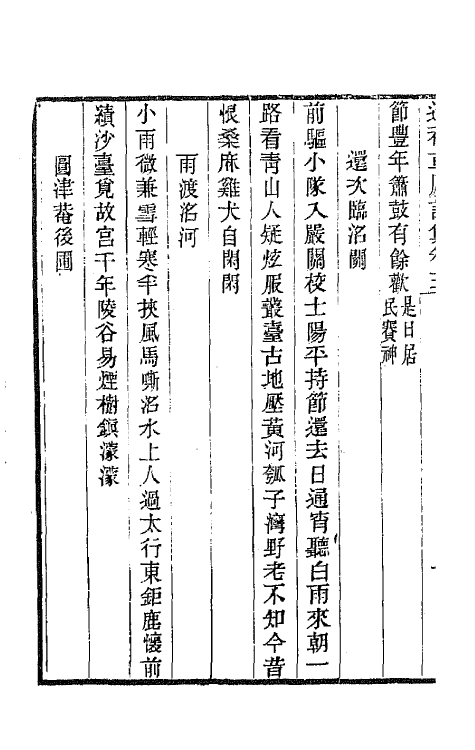 節豐年簫鼓有餘歡是日居民賽神
還次臨洺關
前驅小隊入嚴關校士陽平持節還去日通宵聽白雨來朝一
路看靑山人疑炫服叢臺古地壓黃河瓠子灣野老不知今昔
恨桑麻雞犬自閑閑
雨渡洺河
小雨微兼雪輕寒半挾風馬嘶洺水上人過太行東鉅鹿懷前
績沙臺覓故宮千年陵谷易煙樹鎭濛濛
圓津菴後圃